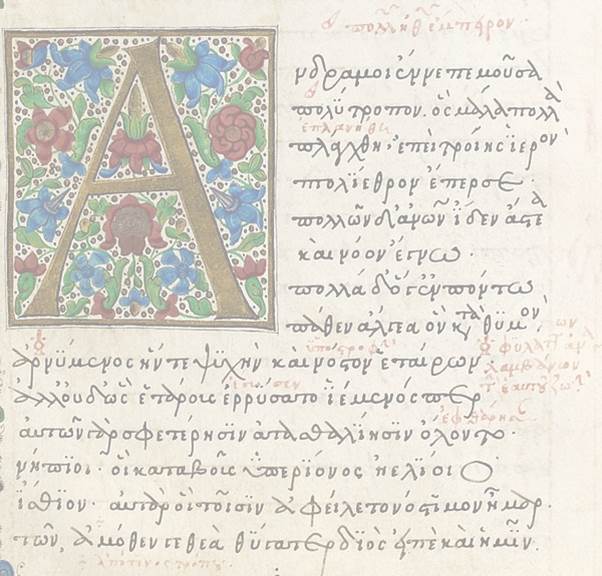 Ανδρα μοι ἔννεπε μοῦσα
πολύτροπον. ὃς μάλα πολλὰ
ἐπλανήθη
πλάγχθη, ἐπεὶ τροίης ἱερὸν
πτολίεθρον ἔπερσε·
πολλῶν δ' ἀνων ἴδεν ἄστεα
καὶ νόον ἔγνω·
πολλὰ δ' ὅγ' ἐν πόντω
πάθεν ἄλγεα ὃν κατὰ θυμόν,
ὑποστροφὴν
ἀρνύμενος ἥν τε ψυχὴν καὶ νόστον ἑταίρων
ἀλλ' οὐδ' ὣς ἑτάρους ἐρρύσατο ἱέμενός περ
αὐτῶν γὰρ σφετέρησιν ἀτασθαλίησιν ὄλοντο·
νήπιοι· οἳ κατὰ βοῦς ὑπερίονος ἠελίοιο
ἤσθιον· αὐτὰρ ὃ τοῖσιν ἀφείλετο νόστιμον ἦμαρ.
τῶν, ἁμόθεν γε θεὰ θύγατερ διὸς εἰπὲ καὶ ἡμῖν.